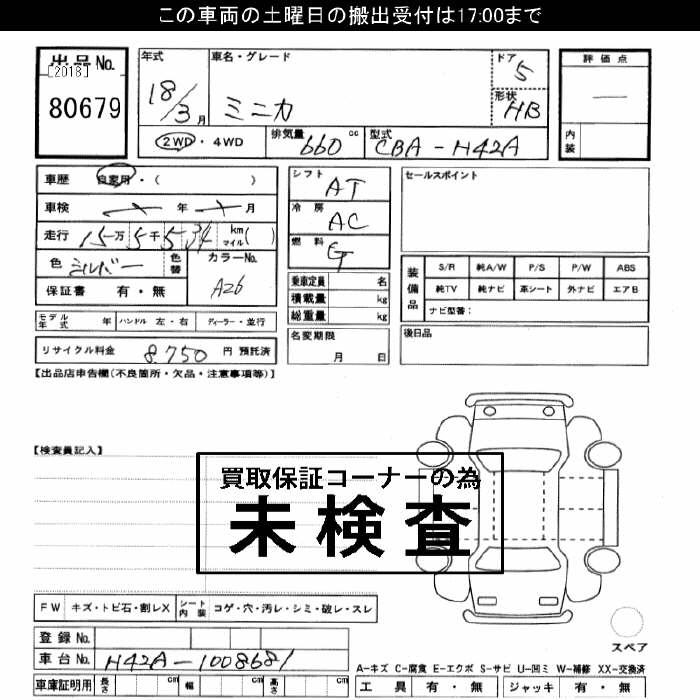 この車両の土曜日の搬出受付は17:00まで
出品No.
[2018]
80679
年式
18/3月
車名・グレード
ミニカ
ドア
5
形状
HB
評価点
―
内装
2WD・4WD
排気量 660 cc
型式 CBA-H42A
車歴 自家用・( )
車検 年 月
走行 15万5千5 34 km マイル( )
色 シルバー 色替
カラーNo.
A26
保証書 有・無
モデル年式 年 ハンドル 左・右 ディーラー・並行
リサイクル料金 8,750 円 預託済
シフト
AT
冷房
AC
燃料
G
乗車定員 名
積載量 kg
総重量 kg
名変期限
月 日
セールスポイント
装備品
S/R 純A/W P/S P/W ABS
純TV 純ナビ 革シート 外ナビ エアB
ナビ型番:
後日品
【出品店申告欄(不良箇所・欠品・注意事項等)】
【検査員記入】
買取保証コーナーの為
未検査
FW キズ・トビ石・割レX
シート内装 コゲ・穴・汚レ・シミ・破レ・スレ
スペア
登録No.
車台No. H42A-1008681
車庫証明用 長さ cm 幅 cm 高さ cm
A-キズ C-腐食 E-エクボ S-サビ U-凹ミ W-補修 XX-交換済
工具 有・無 ジャッキ 有・無